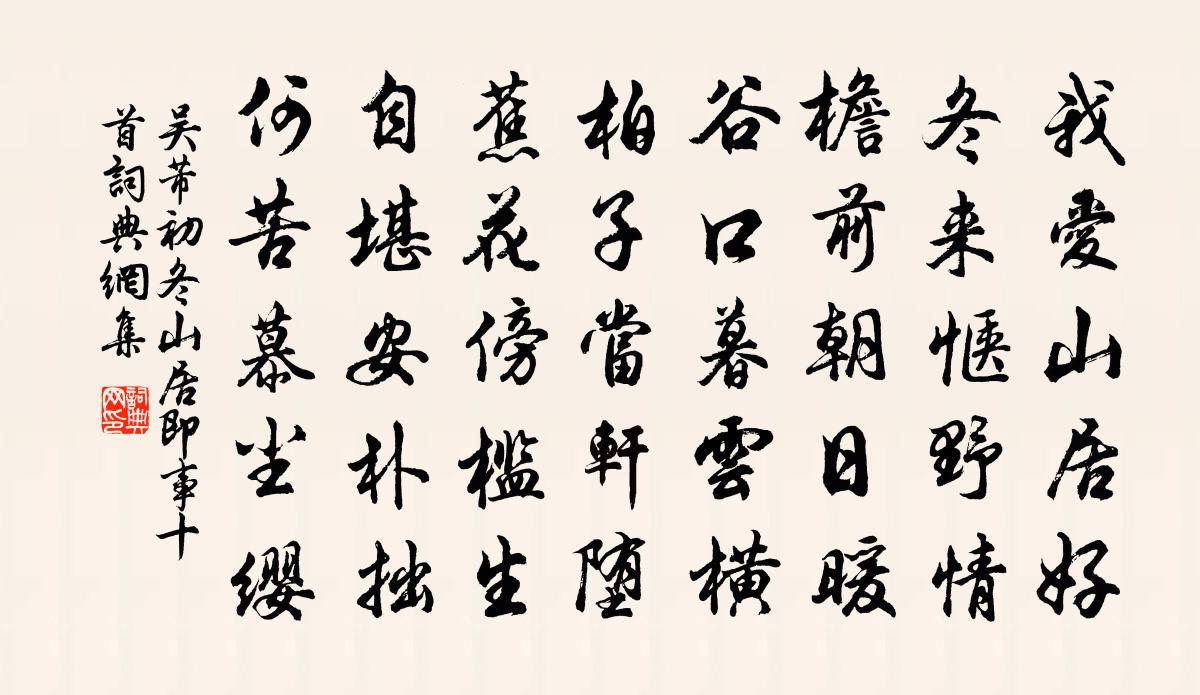 我愛山居好
冬来惬野情
檐前朝日暖
谷口暮雲横
柏子當軒堕
蕉花傍檻生
自堪安朴拙
何苦慕尘缨
吴芾初冬山居即事十
首詞典網集
詞典
网印